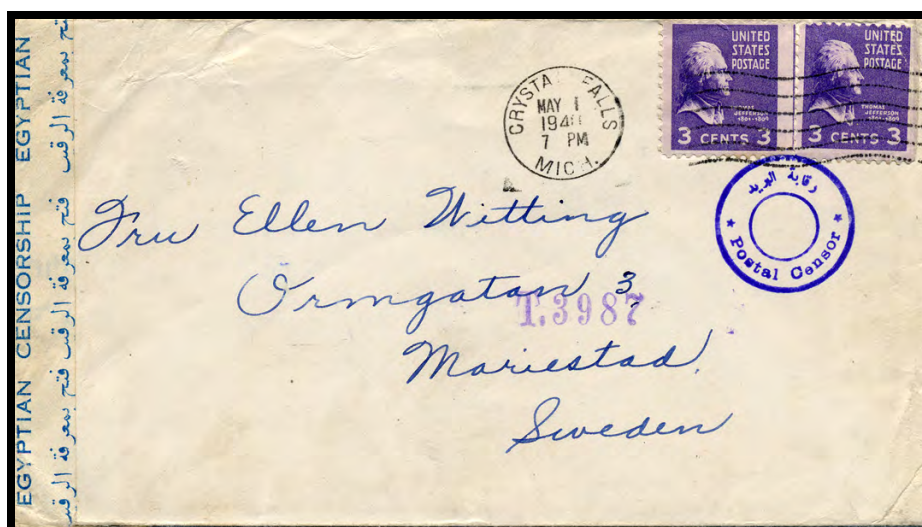 EGYPTIAN CENSORSHIP EGYPTIAN
فتح بمعرفة الرقيب فتح بمعرفة الرقيب فتح بمعرفة
CRYSTAL FALLS
MAY 1
1940
7 PM
MICH.
UNITED
STATES
POSTAGE
THOMAS
JEFFERSON
1801-1809
3 CENTS 3
UNITED
STATES
POSTAGE
THOMAS
JEFFERSON
1801-1809
3 CENTS 3
رقابة البريد
* Postal Censor *
Fru Ellen Witting
Ormgatan 3,
T.3987
Mariestad,
Sweden